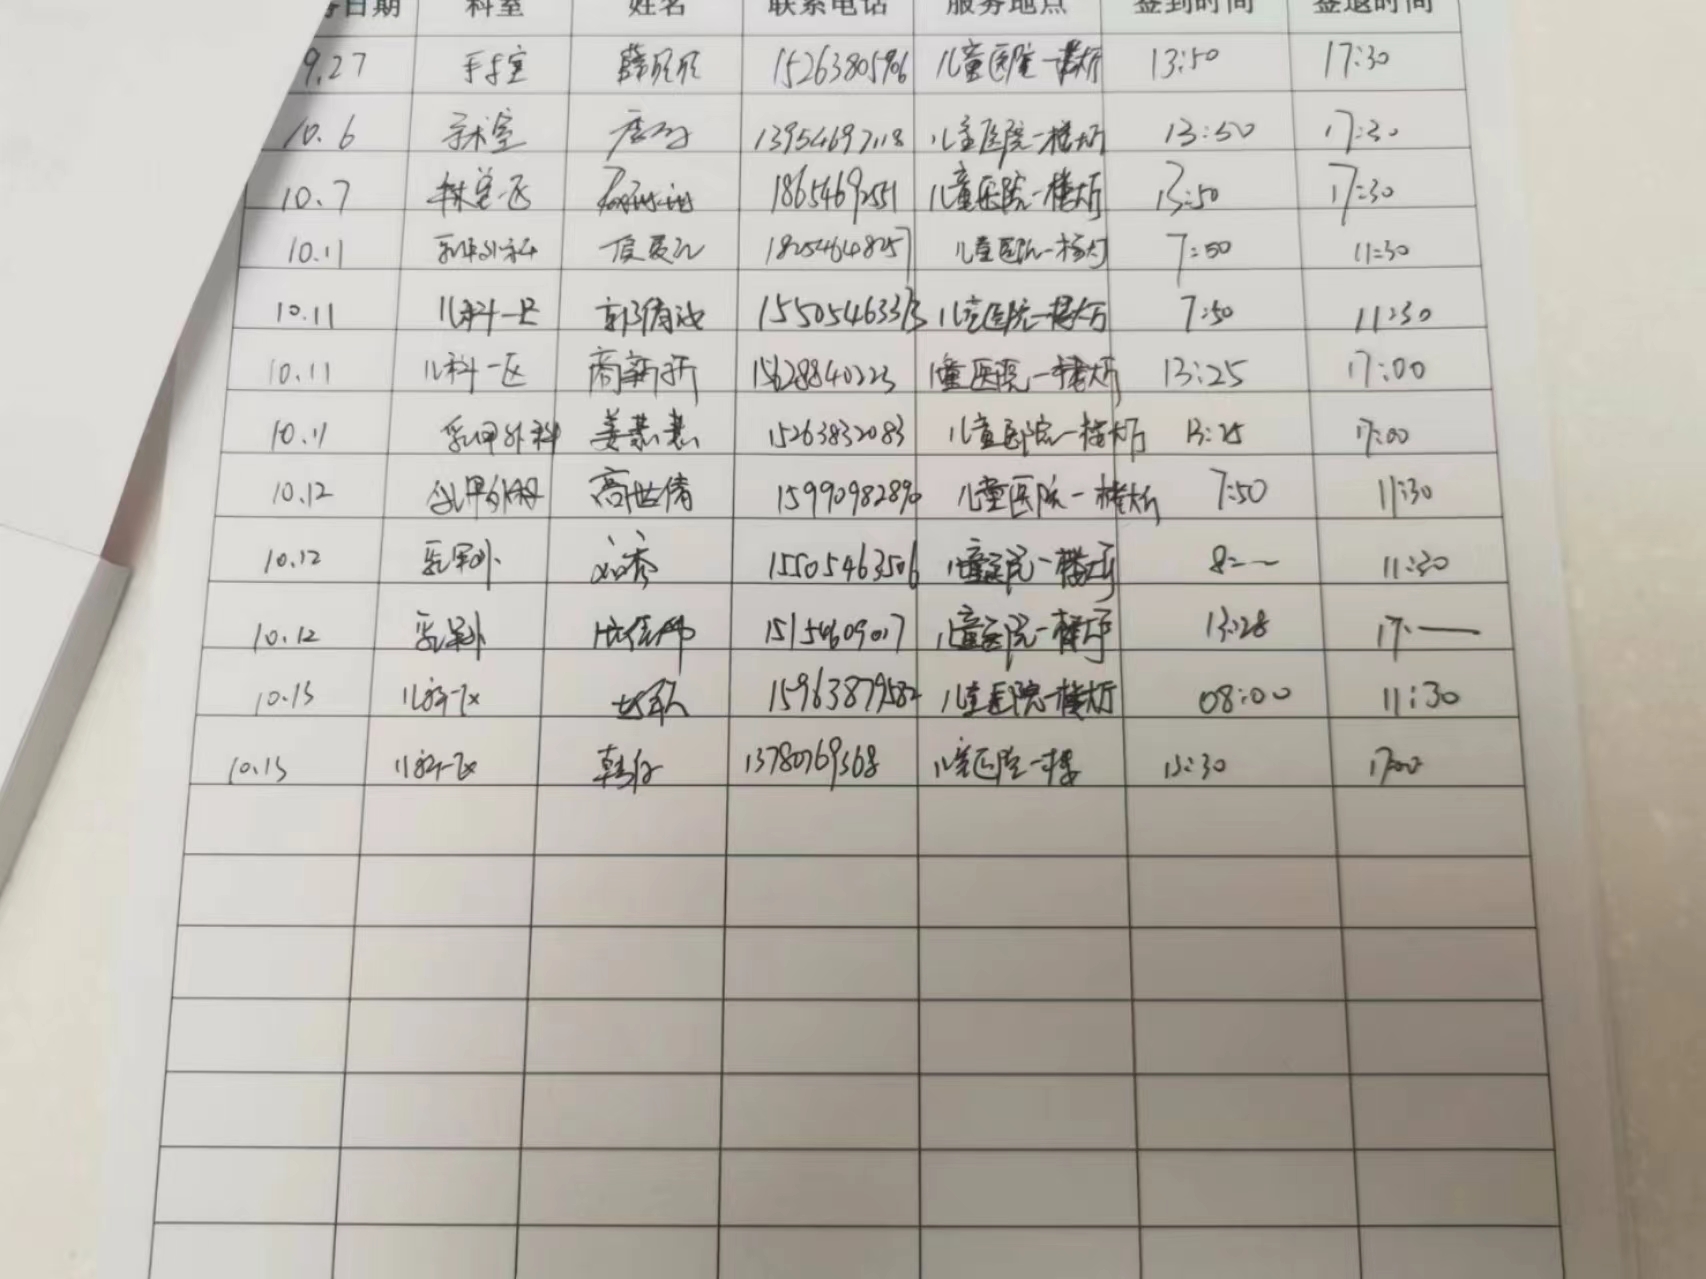 日期 科室 姓名 联系电话 服务地点 签到时间 签退时间
9.27 手术室 薛欣欣 15263805906 儿童医院一楼大厅 13:50 17:30
10.6 手术室 13954697118 儿童医院一楼大厅 13:50 17:30
10.7 18654692551 儿童医院一楼大厅 13:50 17:30
10.11 乳甲外科 18254640257 儿童医院一楼大厅 7:50 11:30
10.11 儿科一区 15505463313 儿童医院一楼大厅 7:50 11:30
10.11 儿科一区 商新新 15628840223 儿童医院一楼大厅 13:25 17:00
10.11 乳甲外科 姜慧慧 15263832083 儿童医院一楼大厅 13:25 17:00
10.12 乳甲外科 高世倩 15990982890 儿童医院一楼大厅 7:50 11:30
10.12 乳甲外 15505463506 儿童医院一楼大厅 8:— 11:30
10.12 乳甲外 15154609017 儿童医院一楼大厅 13:28 17:—
10.13 儿科一区 15963879582 儿童医院一楼大厅 08:00 11:30
10.13 儿科一区 13780769368 儿童医院一楼 13:30 17:00